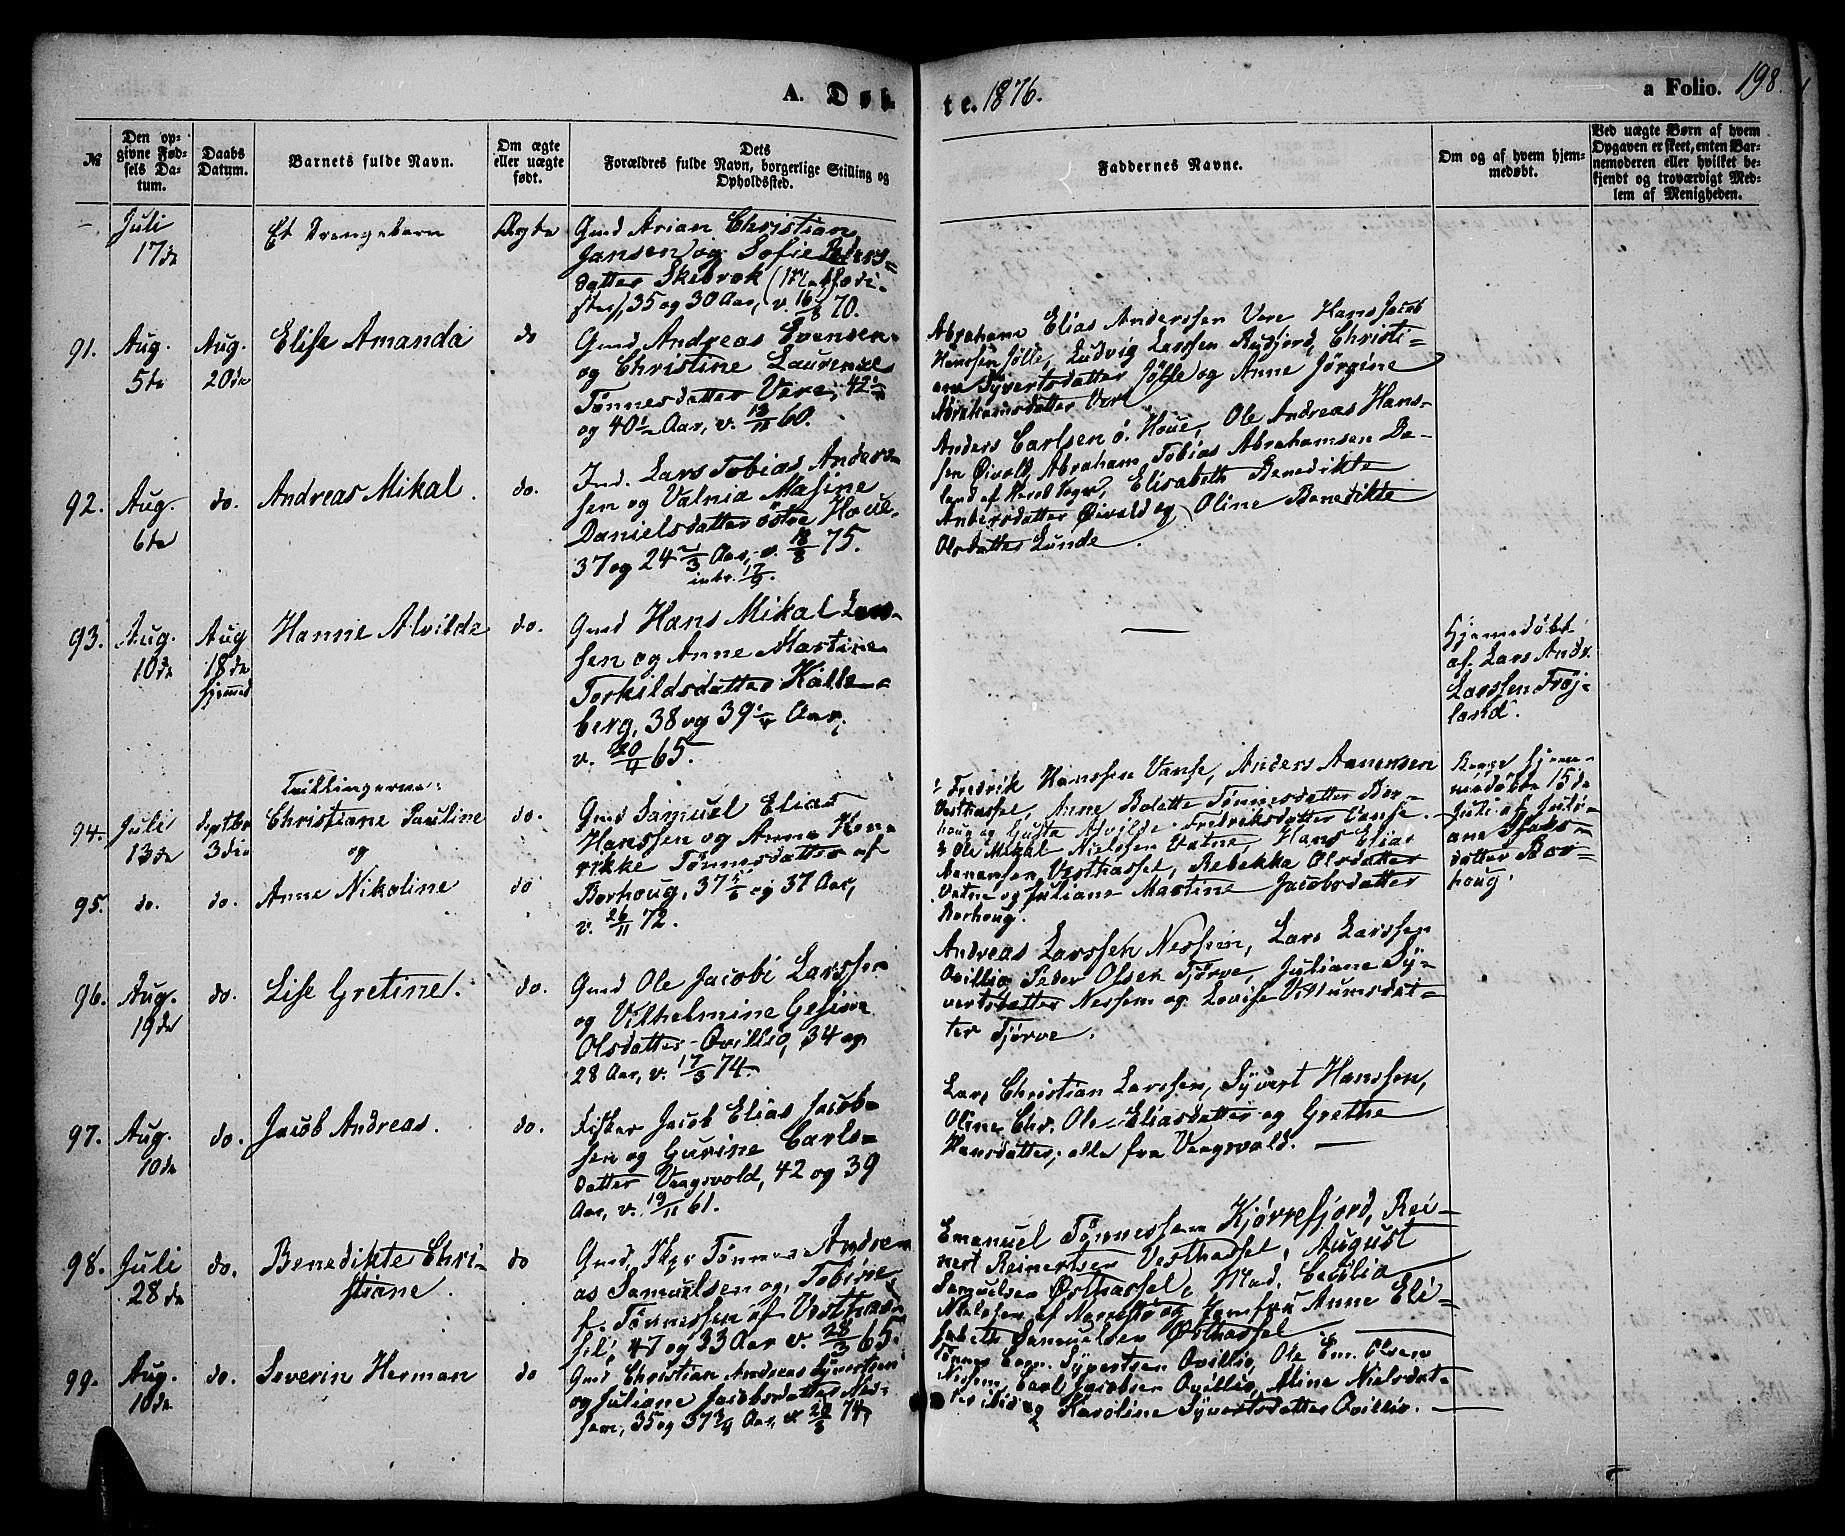 A. Døb-
te. 1876.
a Folio. 198.
№
Den op-
givne Fød-
sels Da-
tum.
Daabs
Datum.
Barnets fulde Navn.
Om ægte
eller uægte
født.
Dets
Forældres fulde Navn, borgerlige Stilling og
Opholdssted.
Faddernes Navne.
Om og af hvem hjem-
medøbt.
Ved uægte Børn af hvem
Opgaven er skeet, enten Bar-
nemoderen eller hvilket be-
kjendt og troværdigt Med-
lem af Menigheden.
Juli
17de
Et Drengebarn
Ægte
Gmd Arian Christian
Jansen og Sofie Peders-
datter Skebrok (Methodi-
ster), 35 og 30 Aar, v. 16/8 70.
91.
Aug.
5te
Aug.
20de
Elise Amanda
do
Gmd Andreas Evensen
og Christine Laurense
Tønnesdatter Vere, 42
og 40 Aar, v. 13/11 60.
Abraham Elias Anderssen Vere Hans Jacob
Hanssen Jølle, Ludvig Larssen Rufjord, Christi-
ane Syvertsdatter Jølle og Anne Jørgine
Abrahamsdatter Vere
92.
Aug.
6te
do.
Andreas Mikal.
do.
Ind. Lars Tobias Anders-
sen og Valnia Masine
Danielsdatter østre Houe,
37 og 24 2/3 Aar, v. 18/8 75.
intr. 17/9.
Anders Carlsen ö. Houe, Ole Andreas Hans-
sen Øivold, Abraham Tobias Abrahamsen Da-
land af Herred Sogn, Elisabeth Benedikte
Andersdatter Øivold og Oline Benedikte
Olsdatter Lunde.
93.
Aug.
10de
Aug
18de
hjemmed
Hanne Alvilde
do.
Gmd Hans Mikal Lars-
sen og Anne Martine
Torkildsdatter Kalle-
berg, 38 og 39 Aar,
v. 20/4 65.
—
Hjemmedøbt
af Lars Andr.
Larssen Frøj-
land.
Tvillingerne:
94.
Juli
13de
Septbr
3die
Christiane Pauline
og
do.
Gmd Samuel Elias
Hanssen og Anne Hen-
rikke Tønnesdatter af
Borhoug, 37 5/6 og 37 Aar,
v. 26/11 72.
95.
do.
do.
Anne Nikoline
do
Fredrik Hanssen Vanse, Anders Aanensen
Vesthassel, Anne Bolette Tønnesdatter Bor-
houg og Gusta Alvilde Fredriksdatter Vanse.
Ole Mikal Nielsen Vatne, Hans Elias
Aanensen Vesthassel, Rebekka Olsdatter
Vatne og Juliane Martine Jacobsdatter
Borhoug.
Begge hjem-
medøbte 15de
Juli af Juli-
ane Isaks-
datter Bor-
houg.
96.
Aug.
19de
do.
Lise Gretine.
do.
Gmd Ole Jacobi Larssen
og Vilhelmine Gesine
Olsdatter Qvillio, 34 og
28 Aar, v. 17/3 74.
Andreas Larssen Nessem, Lars Larssen
Qvillio Peder Olsen Tjørve, Juliane Sy-
vertsdatter Nessem og Lovise Villumsdat-
ter Tjørve.
97.
Aug.
10de
do.
Jacob Andreas.
do.
Fisker Jacob Elias Jacob-
sen og Gurine Carls-
datter Vaagsvold, 42 og 39
Aar, v. 19/11 61.
Lars Christian Larssen, Syvert Hanssen,
Oline Chr. Ole Eliasdatter og Grethe
Hansdatter, alle fra Vaagsvold. —
98.
Juli
28de
do.
Benedikte Chri-
stiane.
do
Gmd Skpr Tønnes Andre-
as Samuelsen og Tobine
f. Tønnessen af Vesthas-
sel, 47 og 33 Aar v. 28/3 65.
Emanuel Tønnessen Kjørrefjord, Rei-
nert Reinertsen Vesthassel, August
Samuelsen Østhassel, Mad. Cecilia
Nielsen af Nordstø og Jomfru Anne Eli-
sabeth Samuelsen Østhassel
99.
Aug.
10de
do.
Severin Herman
do
Gmd Christian Andreas Syvertsen
og Juliane Jacobsdatter Nes-
sem, 35 og 37 Aar, v. 20/3 74,
Tønnes Corn. Syvertsen Qvillio, Ole Em. Olsen
Nessem, Carl Jacobsen Qvillio, Aline Nielsdat-
ter ibid og Karoline Syvertsdatter Qvillio. —